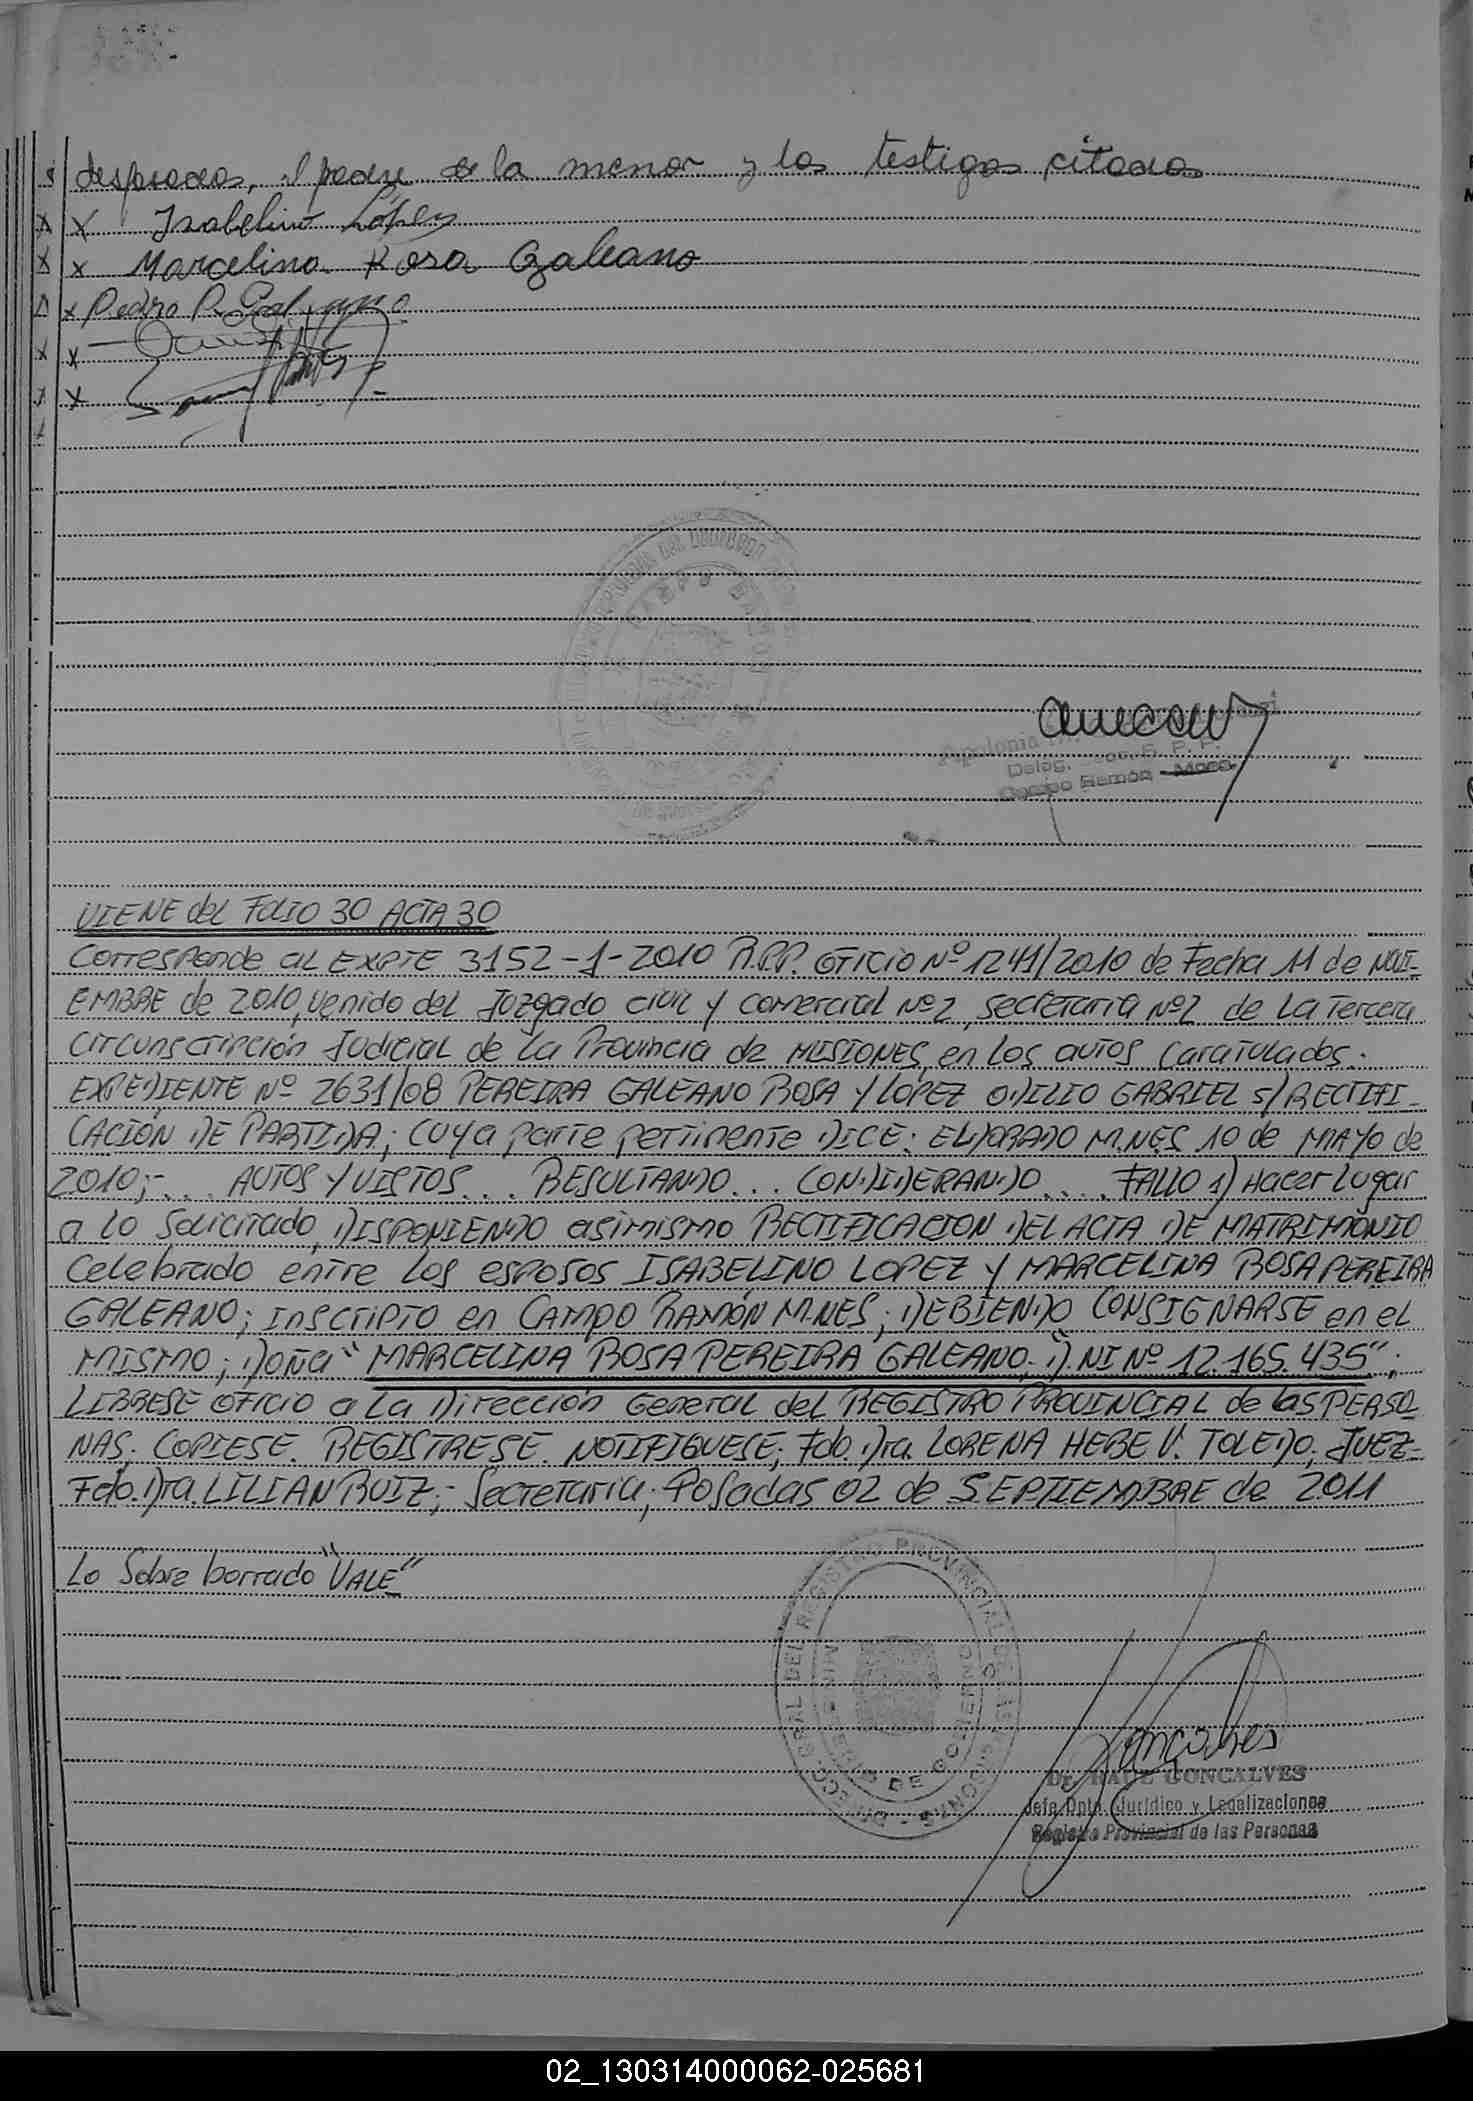 desposados, el padre de la menor y los testigos citados
x Isabelino López
x Marcelina Rosa Galeano
x Pedro P. Galeano
x
x
Apolonia
Deleg. R. P. P.
Campo Ramón - Mnes.
VIENE del FOLIO 30 ACTA 30
Corresponde al EXPTE 3152-1-2010 R.P.P. OFICIO Nº 1241/2010 de Fecha 11 de NOVI-
EMBRE de 2010, venido del Juzgado civil y comercial Nº2, secretaria Nº2 de La Tercera
circunscripción Judicial de La Provincia de MISIONES, en los autos caratulados:
EXPEDIENTE Nº 2631/08 PEREIRA GALEANO ROSA Y LÓPEZ ODILIO GABRIEL s/RECTIFI-
CACIÓN DE PARTIDA; CUYA parte pertinente DICE: ELDORADO M.NES 10 de MAYO de
2010;-... AUTOS Y VISTOS... RESULTANDO... CONSIDERANDO.... FALLO 1) Hacer Lugar
a lo Solicitado, DISPONIENDO asimismo RECTIFICACION DEL ACTA DE MATRIMONIO
Celebrado entre los esposos ISABELINO LOPEZ Y MARCELINA ROSA PEREIRA
GALEANO; INSCRIPTO en CAMPO RAMÓN M.NES; DEBIENDO CONSIGNARSE en el
MISMO; Doña "MARCELINA ROSA PEREIRA GALEANO, D.NI Nº 12.165.435";
LIBRESE OFICIO a La Dirección General del REGISTRO PROVINCIAL de las PERSO-
NAS. COPIESE. REGISTRESE. NOTIFIQUESE; Fdo. Dra. LORENA HEBE V. TOLEDO, JUEZ-
Fdo. Dra. LILIAN RUIZ;- Secretaria, Posadas 02 de SEPTIEMBRE de 2011
Lo Sobre borrado "VALE"
DIRECC. GRAL. DEL REGISTRO PROVINCIAL DE LAS PERSONAS
MINISTERIO DE GOBIERNO
Goncalves
Dr. RAUL GONCALVES
Jefe Dpto. Jurídico y Legalizaciones
Registro Provincial de las Personas
02_130314000062-025681